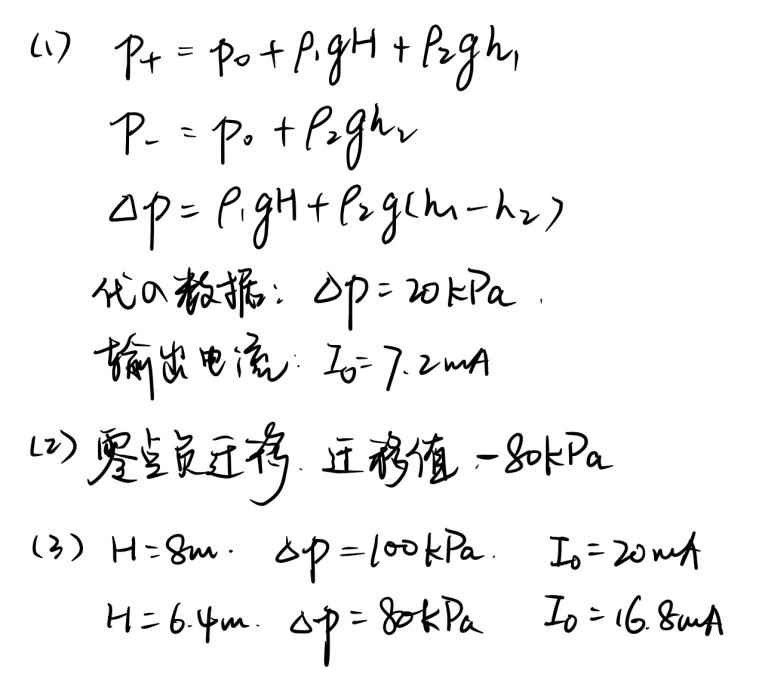 (1) P₊ = p₀ + ρ₁gH + ρ₂gh₁
P₋ = p₀ + ρ₂gh₂
Δp = ρ₁gH + ρ₂g(h₁-h₂)
代入数据: Δp = 20kPa.
输出电流: I₀ = 7.2mA
(2) 零点负迁移. 迁移值 -80kPa
(3) H=8m. Δp = 100kPa. I₀ = 20mA
H = 6.4m. Δp = 80kPa I₀ = 16.8mA